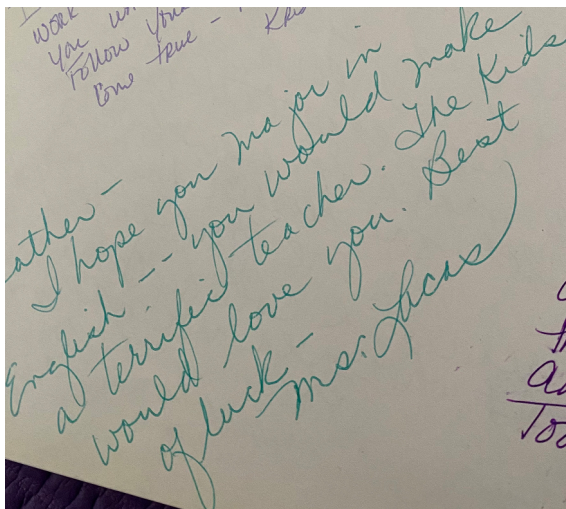 work
you
Follow your
Come true -
Kris
ather -
I hope you major in
English -- you would make
a terrific teacher. The Kids
would love you. Best
of luck -
Ms. Lucas